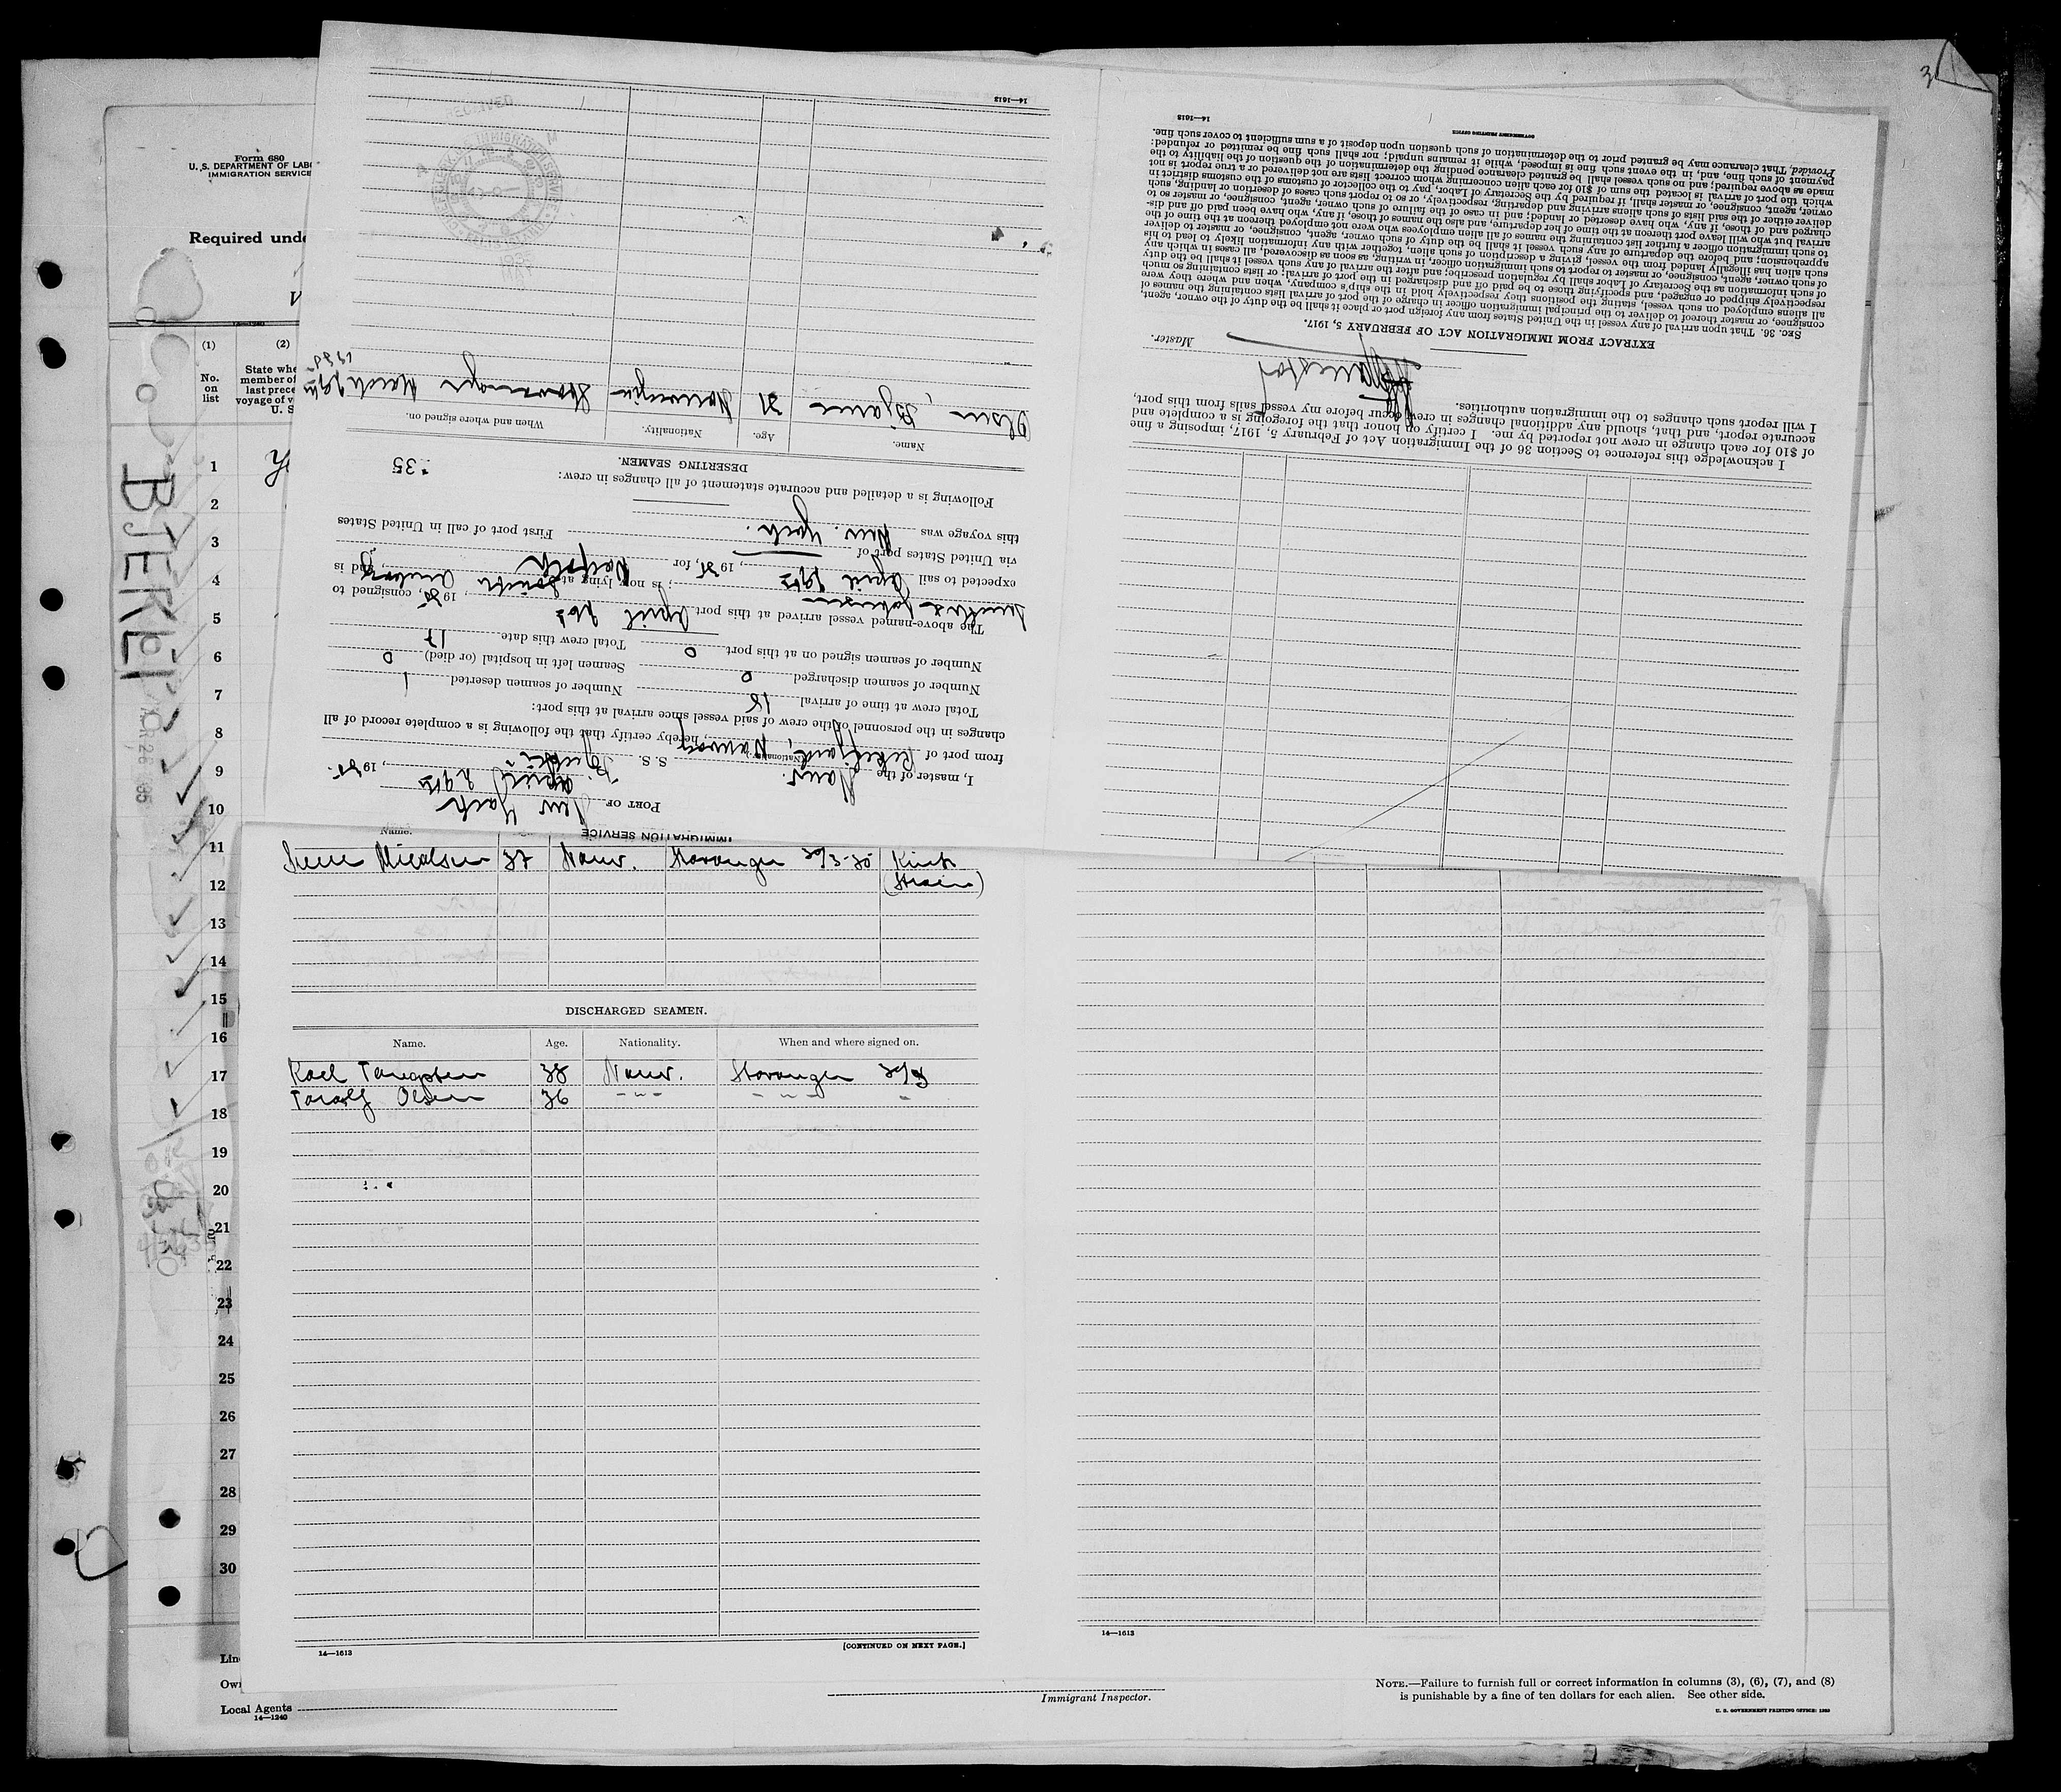 3
Form 680
U. S. DEPARTMENT OF LABO
IMMIGRATION SERVICE
Required unde
14—1240
(1)
(2)
No.
on
list
State whe
member of
last prece
voyage of v
U. S
1
2
3
4
5
6
7
8
9
10
11
12
13
14
15
16
17
18
19
20
21
22
23
24
25
26
27
28
29
30
BJERKLI
Lin
Own
Local Agents
14—1240
Immigrant Inspector.
NOTE.—Failure to furnish full or correct information in columns (3), (6), (7), and (8)
is punishable by a fine of ten dollars for each alien. See other side.
U. S. GOVERNMENT PRINTING OFFICE:
IMMIGRATION SERVICE
PORT OF New York
April 29th, 1935.
I, master of the Norw. S. S. Bjerkli
(Nationality)
from port of Rekefjord, Norway, hereby certify that the following is a complete record of all
changes in the personnel of the crew of said vessel since arrival at this port:
Total crew at time of arrival 18 Number of seamen deserted 1
Number of seamen discharged 0 Seamen left in hospital (or died) 0
Number of seamen signed on at this port 0 Total crew this date 17
The above-named vessel arrived at this port April 26th, 1935, consigned to
is now lying at South Amboy, and is
expected to sail April 29th, 1935, for Norfolk
via United States port of
this voyage was New York. First port of call in United States
Following is a detailed and accurate statement of all changes in crew:
DESERTING SEAMEN.
35
Name. Age. Nationality. When and where signed on.
Olsen, Bjarne 31 Norwegian Stavanger March 29th
1935
RECEIVED
14—1613
I acknowledge this reference to Section 36 of the Immigration Act of February 5, 1917, imposing a fine
of $10 for each change in crew not reported by me. I certify on honor that the foregoing is a complete and
accurate report, and that, should any additional changes in crew occur before my vessel sails from this port,
I will report such changes to the immigration authorities.
Master.
EXTRACT FROM IMMIGRATION ACT OF FEBRUARY 5, 1917.
SEC. 36. That upon arrival of any vessel in the United States from any foreign port or place it shall be the duty of the owner, agent,
consignee, or master thereof to deliver to the principal immigration officer in charge of the port of arrival lists containing the names of
all aliens employed on such vessel, stating the positions they respectively hold in the ship's company, when and where they were
respectively shipped or engaged, and specifying those to be paid off and discharged in the port of arrival; or lists containing so much
of such information as the Secretary of Labor shall by regulation prescribe; and after the arrival of any such vessel it shall be the duty
of such owner, agent, consignee, or master to report to such immigration officer, in writing, as soon as discovered, all cases in which any
such alien has illegally landed from the vessel, giving a description of such alien, together with any information likely to lead to his
apprehension; and before the departure of any such vessel it shall be the duty of such owner, agent, consignee, or master to deliver
to such immigration officer a further list containing the names of all alien employees who were not employed thereon at the time of the
arrival but who will leave port thereon at the time of her departure, and also the names of those, if any, who have been paid off and dis-
charged and of those, if any, who have deserted or landed; and in case of the failure of such owner, agent, consignee, or master so to
deliver either of the said lists of such aliens arriving and departing, respectively, or so to report such cases of desertion or landing, such
owner, agent, consignee, or master shall, if required by the Secretary of Labor, pay to the collector of customs of the customs district in
which the port of arrival is located the sum of $10 for each alien concerning whom correct lists are not delivered or a true report is not
made as above required; and no such vessel shall be granted clearance pending the determination of the question of the liability to the
payment of such fine, and, in the event such fine is imposed, while it remains unpaid; nor shall such fine be remitted or refunded:
Provided, That clearance may be granted prior to the determination of such question upon deposit of a sum sufficient to cover such fine.
GOVERNMENT PRINTING OFFICE
14—1613
Name.
37 Norw. Stavanger
DISCHARGED SEAMEN.
Name. Age. Nationality. When and where signed on.
38 Norw. Stavanger
Toralf Olsen 36 - " - - " -
14—1613
[CONTINUED ON NEXT PAGE.]
14—1613